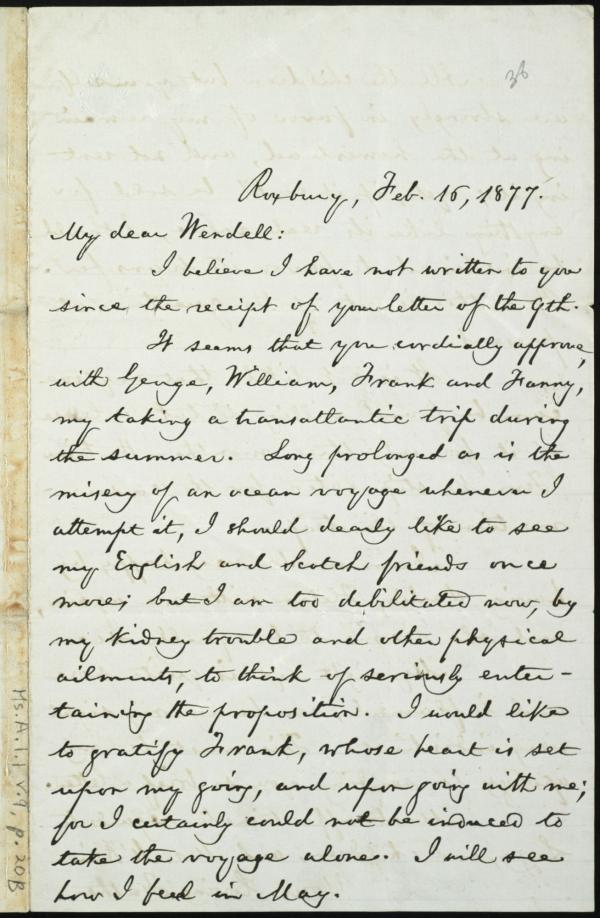 36
Roxbury, Feb. 16, 1877.
My dear Wendell:
I believe I have not written to you
since the receipt of your letter of the 9th.
It seems that you cordially approve,
with George, William, Frank and Fanny,
my taking a transatlantic trip during
the summer. Long prolonged as is the
misery of an ocean voyage whenever I
attempt it, I should dearly like to see
my English and Scotch friends once
more; but I am too debilitated now, by
my kidney trouble and other physical
ailments, to think of seriously enter-
taining the proposition. I would like
to gratify Frank, whose heart is set
upon my going, and upon going with me;
for I certainly could not be induced to
take the voyage alone. I will see
how I feel in May.
Ms. A. 1. 1 v. 9, p. 20B